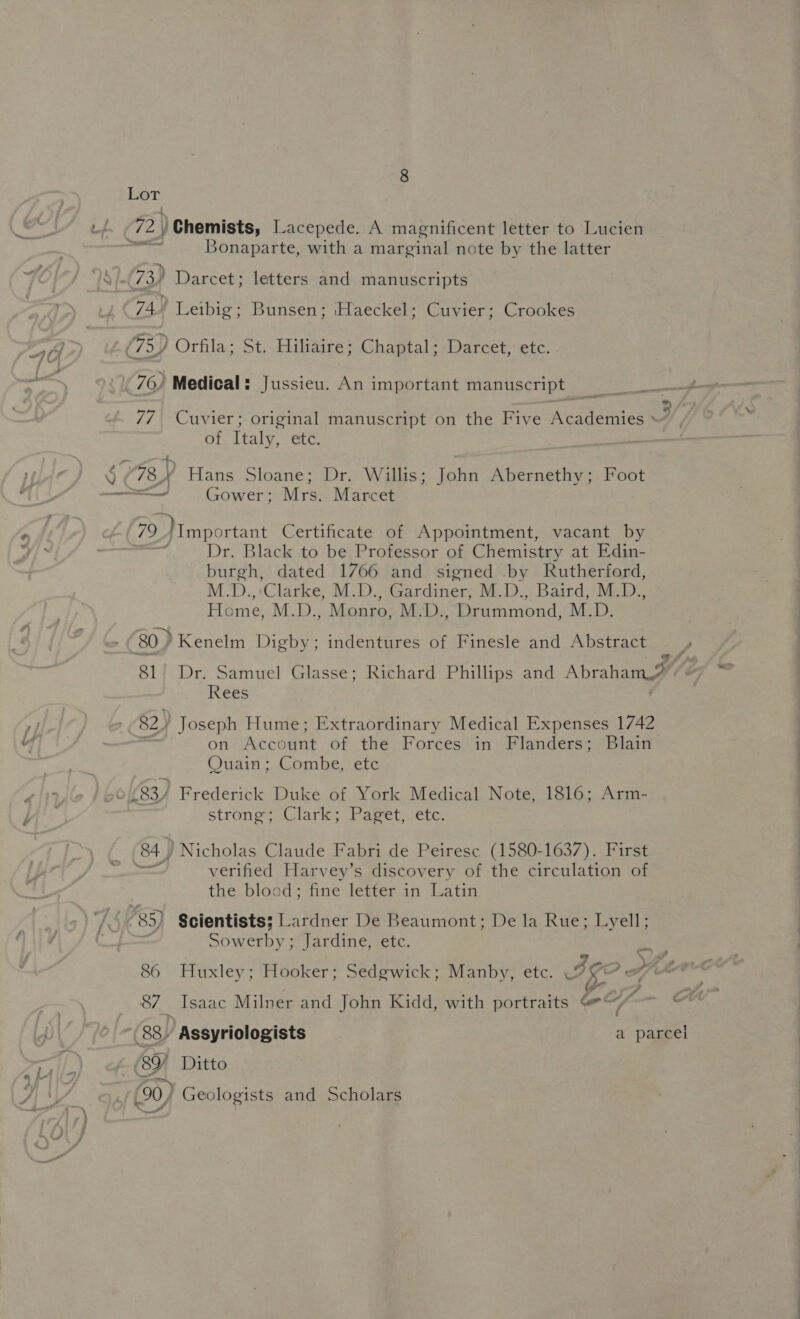 8
Lot
72 Chemists, Lacepede. A magnificent letter to Lucien
Bonaparte, with a marginal note by the latter
73 Darcet; letters and manuscripts
74 Leibig; Bunsen; Haeckel; Cuvier; Crookes
75 Orfila; St. Hiliaire; Chaptal; Darcet, etc.
76 Medical: Jussieu. An important manuscript
77 Cuvier; original manuscript on the Five Academies
of Italy, etc.
78 Hans Sloane; Dr. Willis; John Abernethy; Foot
Gower; Mrs. Marcet
79 Important Certificate of Appointment, vacant by
Dr. Black to be Professor of Chemistry at Edin-
burgh, dated 1766 and signed by Rutherford,
M.D., Clarke, M.D., Gardiner, M.D., Baird, M.D.,
Home, M.D., Monro, M.D., Drummond, M.D.
80 Kenelm Digby; indentures of Finesle and Abstract
81 Dr. Samuel Glasse; Richard Phillips and Abraham
Rees
82 Joseph Hume; Extraordinary Medical Expenses 1742
on Account of the Forces in Flanders; Blain
Quain; Combe, etc
83 Frederick Duke of York Medical Note, 1816; Arm-
strong; Clark; Paget, etc.
84 Nicholas Claude Fabri de Peiresc (1580-1637). First
verified Harvey's discovery of the circulation of
the blood; fine letter in Latin
85 Scientists; Lardner De Beaumont; De la Rue; Lyell;
Sowerby; Jardine, etc.
86 Huxley; Hooker; Sedgwick; Manby, etc.
87 Isaac Milner and John Kidd, with portraits
88 Assyriologists a parcel
89 Ditto
90 Geologists and Scholars